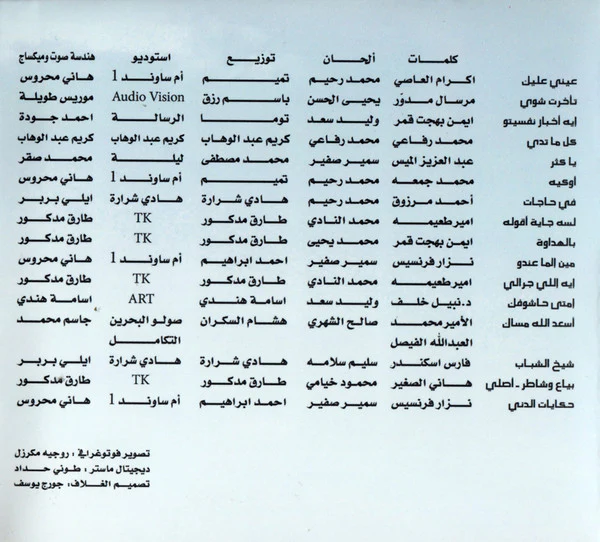 كلمات ألحان توزيع استوديو هندسة صوت وميكساج
عيني عليك اكرام العاصي محمد رحيم تميم أم ساوند 1 هاني محروس
تأخرت شوي مرسال مدور يحيى الحسن باسم رزق Audio Vision موريس طويلة
إيه أخبار نفسيتو ايمن بهجت قمر وليد سعد توما الرسالة احمد جودة
كل ما تدي محمد رفاعي محمد رفاعي كريم عبد الوهاب كريم عبد الوهاب كريم عبد الوهاب
يا كثر عبد العزيز الميس سمير صفير محمد مصطفى ليلة محمد صقر
أوكيه محمد جمعه محمد رحيم تميم أم ساوند 1 هاني محروس
في حاجات أحمد مرزوق محمد رحيم هادي شرارة هادي شرارة ايلي بربر
لسه جاية أقوله امير طعيمه محمد النادي طارق مدكور TK طارق مدكور
بالهداوة ايمن بهجت قمر محمد يحيى طارق مدكور TK طارق مدكور
مين إلما عندو نزار فرنسيس سمير صفير احمد ابراهيم أم ساوند 1 هاني محروس
إيه اللي جرالي امير طعيمه محمد النادي طارق مدكور TK طارق مدكور
إمتى حاشوفك د.نبيل خلف وليد سعد اسامة هندي ART اسامة هندي
أسعد الله مساك الأمير محمد صالح الشهري هشام السكران صولو البحرين جاسم محمد
العبدالله الفيصل التكامل
شيخ الشباب فارس اسكندر سليم سلامه هادي شرارة هادي شرارة ايلي بربر
بياع وشاطر - أصلي هاني الصغير محمود خيامي طارق مدكور TK طارق مدكور
حكايات الدني نزار فرنسيس سمير صفير احمد ابراهيم أم ساوند 1 هاني محروس
تصوير فوتوغرافي : روجيه مكرزل
ديجيتال ماستر : طوني حداد
تصميم الغلاف: جورج يوسف